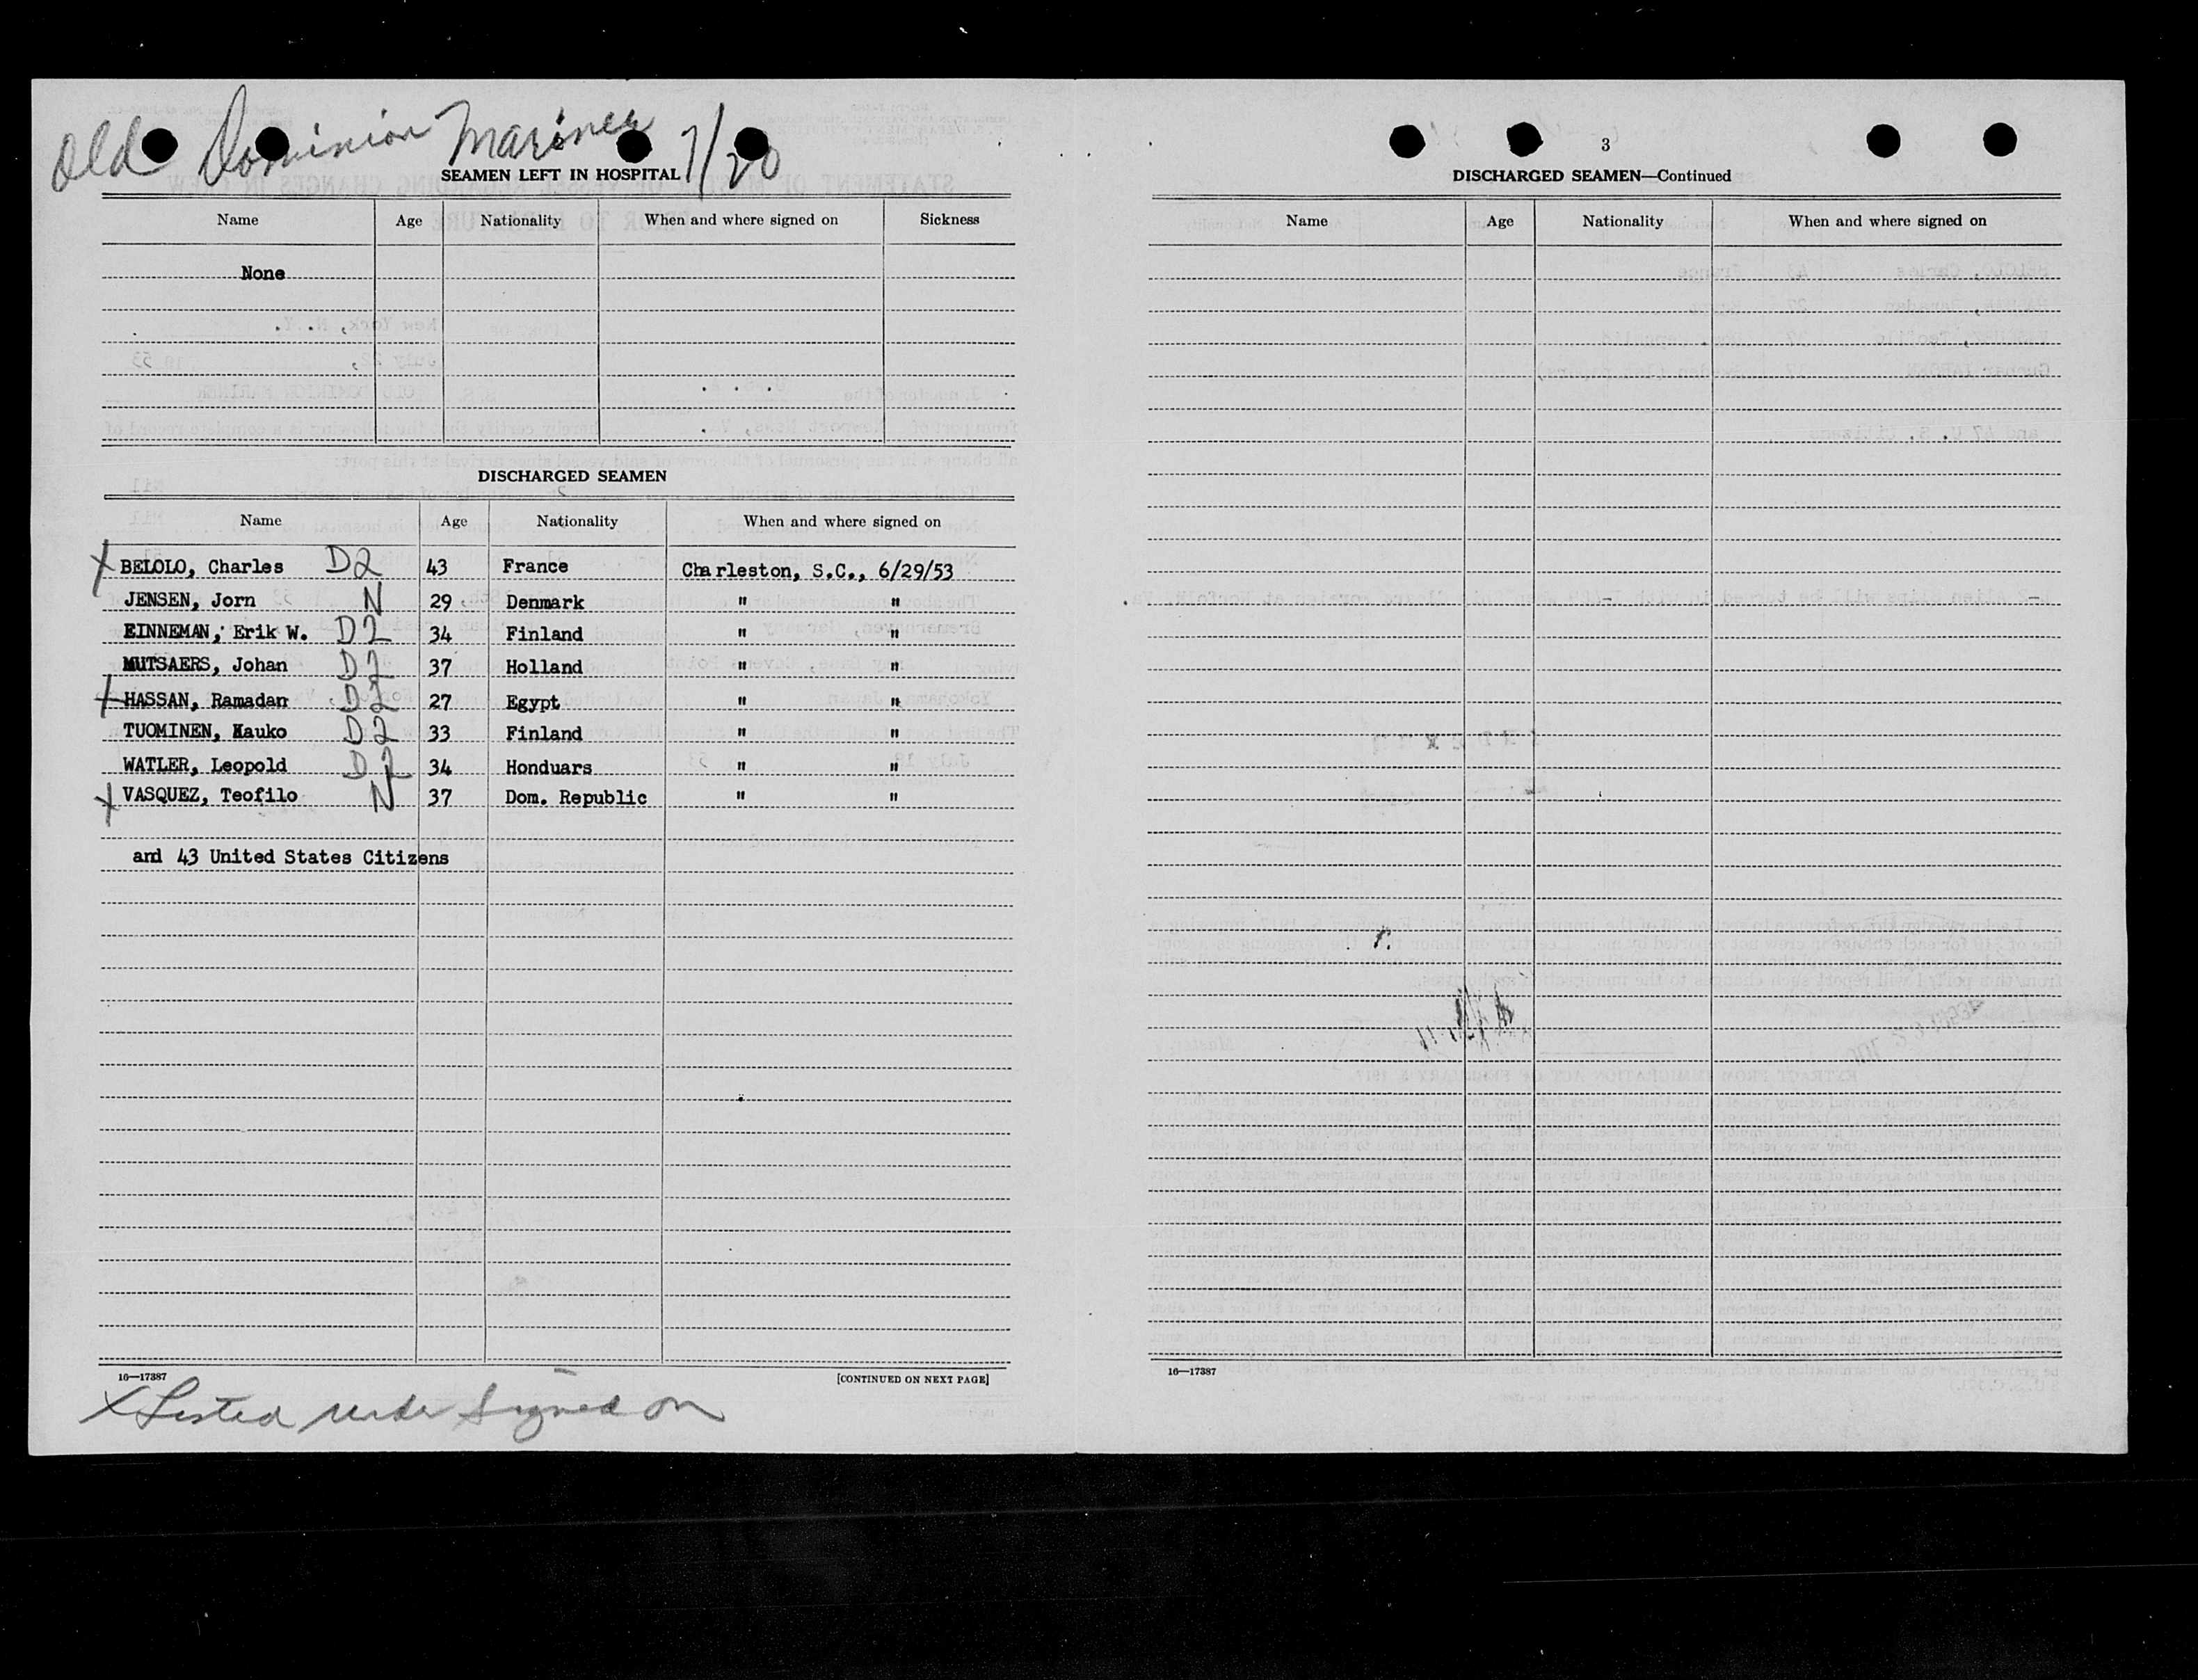 Old Dominion Mariner 7/20
SEAMEN LEFT IN HOSPITAL
Name Age Nationality When and where signed on Sickness
None
DISCHARGED SEAMEN
Name Age Nationality When and where signed on
X BELOLO, Charles D2 43 France Charleston, S.C., 6/29/53
JENSEN, Jorn N 29 Denmark " "
EINNEMAN, Erik W. D2 34 Finland " "
MUTSAERS, Johan D2 37 Holland " "
X HASSAN, Ramadan D2 27 Egypt " "
TUOMINEN, Kauko D2 33 Finland " "
WATLER, Leopold D2 34 Honduars " "
X VASQUEZ, Teofilo N 37 Dom. Republic " "
and 43 United States Citizens
16—17387 [CONTINUED ON NEXT PAGE]
X Listed under signed on
3
DISCHARGED SEAMEN—Continued
Name Age Nationality When and where signed on
16—17387